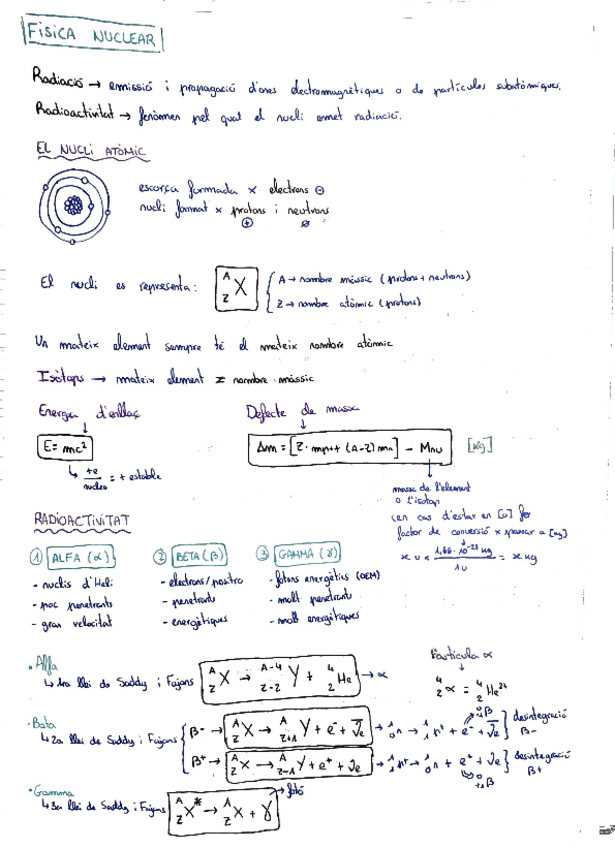 FISICA NUCLEAR
Radiació → emissió i propagació d'ones electromagnètiques o de partícules subatòmiques.
Radioactivitat → fenòmen pel qual el nucli emet radiació.
EL NUCLI ATÒMIC
escorça formada x electrons ⊖
nucli format x protons i neutrons
⊕ ∅
El nucli es representa: A Z X { A → nombre màssic (protons + neutrons)
Z → nombre atòmic (protons)
Un mateix element sempre té el mateix nombre atòmic
Isòtops → mateix element ≠ nombre màssic
Energia d'enllaç Defecte de massa
↓ ↓
E = mc² Δm = [Z · mp+ + (A-Z) mn] - Mnu [kg]
↳ +e/nucleó = + estable
massa de l'element
o l'isotop
(en cas d'estar en [u] fer
factor de conversió x passar a [kg]
x u x 1,66·10⁻²⁷ kg / 1u = x kg
RADIOACTIVITAT
① ALFA (α) ② BETA (β) ③ GAMMA (γ)
- nuclis d'Heli - electrons/positro - fotons energètics (OEM)
- poc penetrants - penetrants - molt penetrants
- gran velocitat - energètiques - molt energètiques
· Alfa Partícula α
↳ 1ra llei de Soddy i Fajans A Z X → A-4 Z-2 Y + 4 2 He → α 4 2 α = 4 2 He²⁺
· Beta
↳ 2a llei de Soddy i Fajans { β- → A Z X → A Z+1 Y + e⁻ + ν̄e → 1 0 n → 1 1 p⁺ + e⁻ + ν̄e } desintegració β-
0 -1 β
β+ → A Z X → A Z-1 Y + e⁺ + νe → 1 1 p⁺ → 1 0 n + e⁺ + νe } desintegració β+
0 +1 β
· Gamma
↳ 3a llei de Soddy i Fajans A Z X* → A Z X + γ → fotó